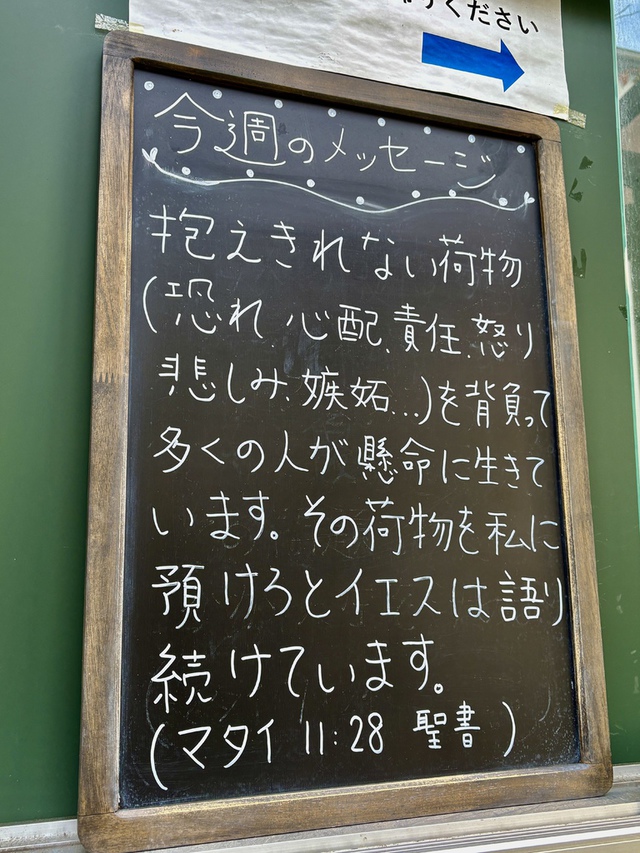 ください
今週のメッセージ
抱えきれない荷物
(恐れ、心配、責任、怒り
悲しみ、嫉妬…)を背負って
多くの人が懸命に生きて
います。その荷物を私に
預けろとイエスは語り
続けています。
(マタイ 11:28 聖書)